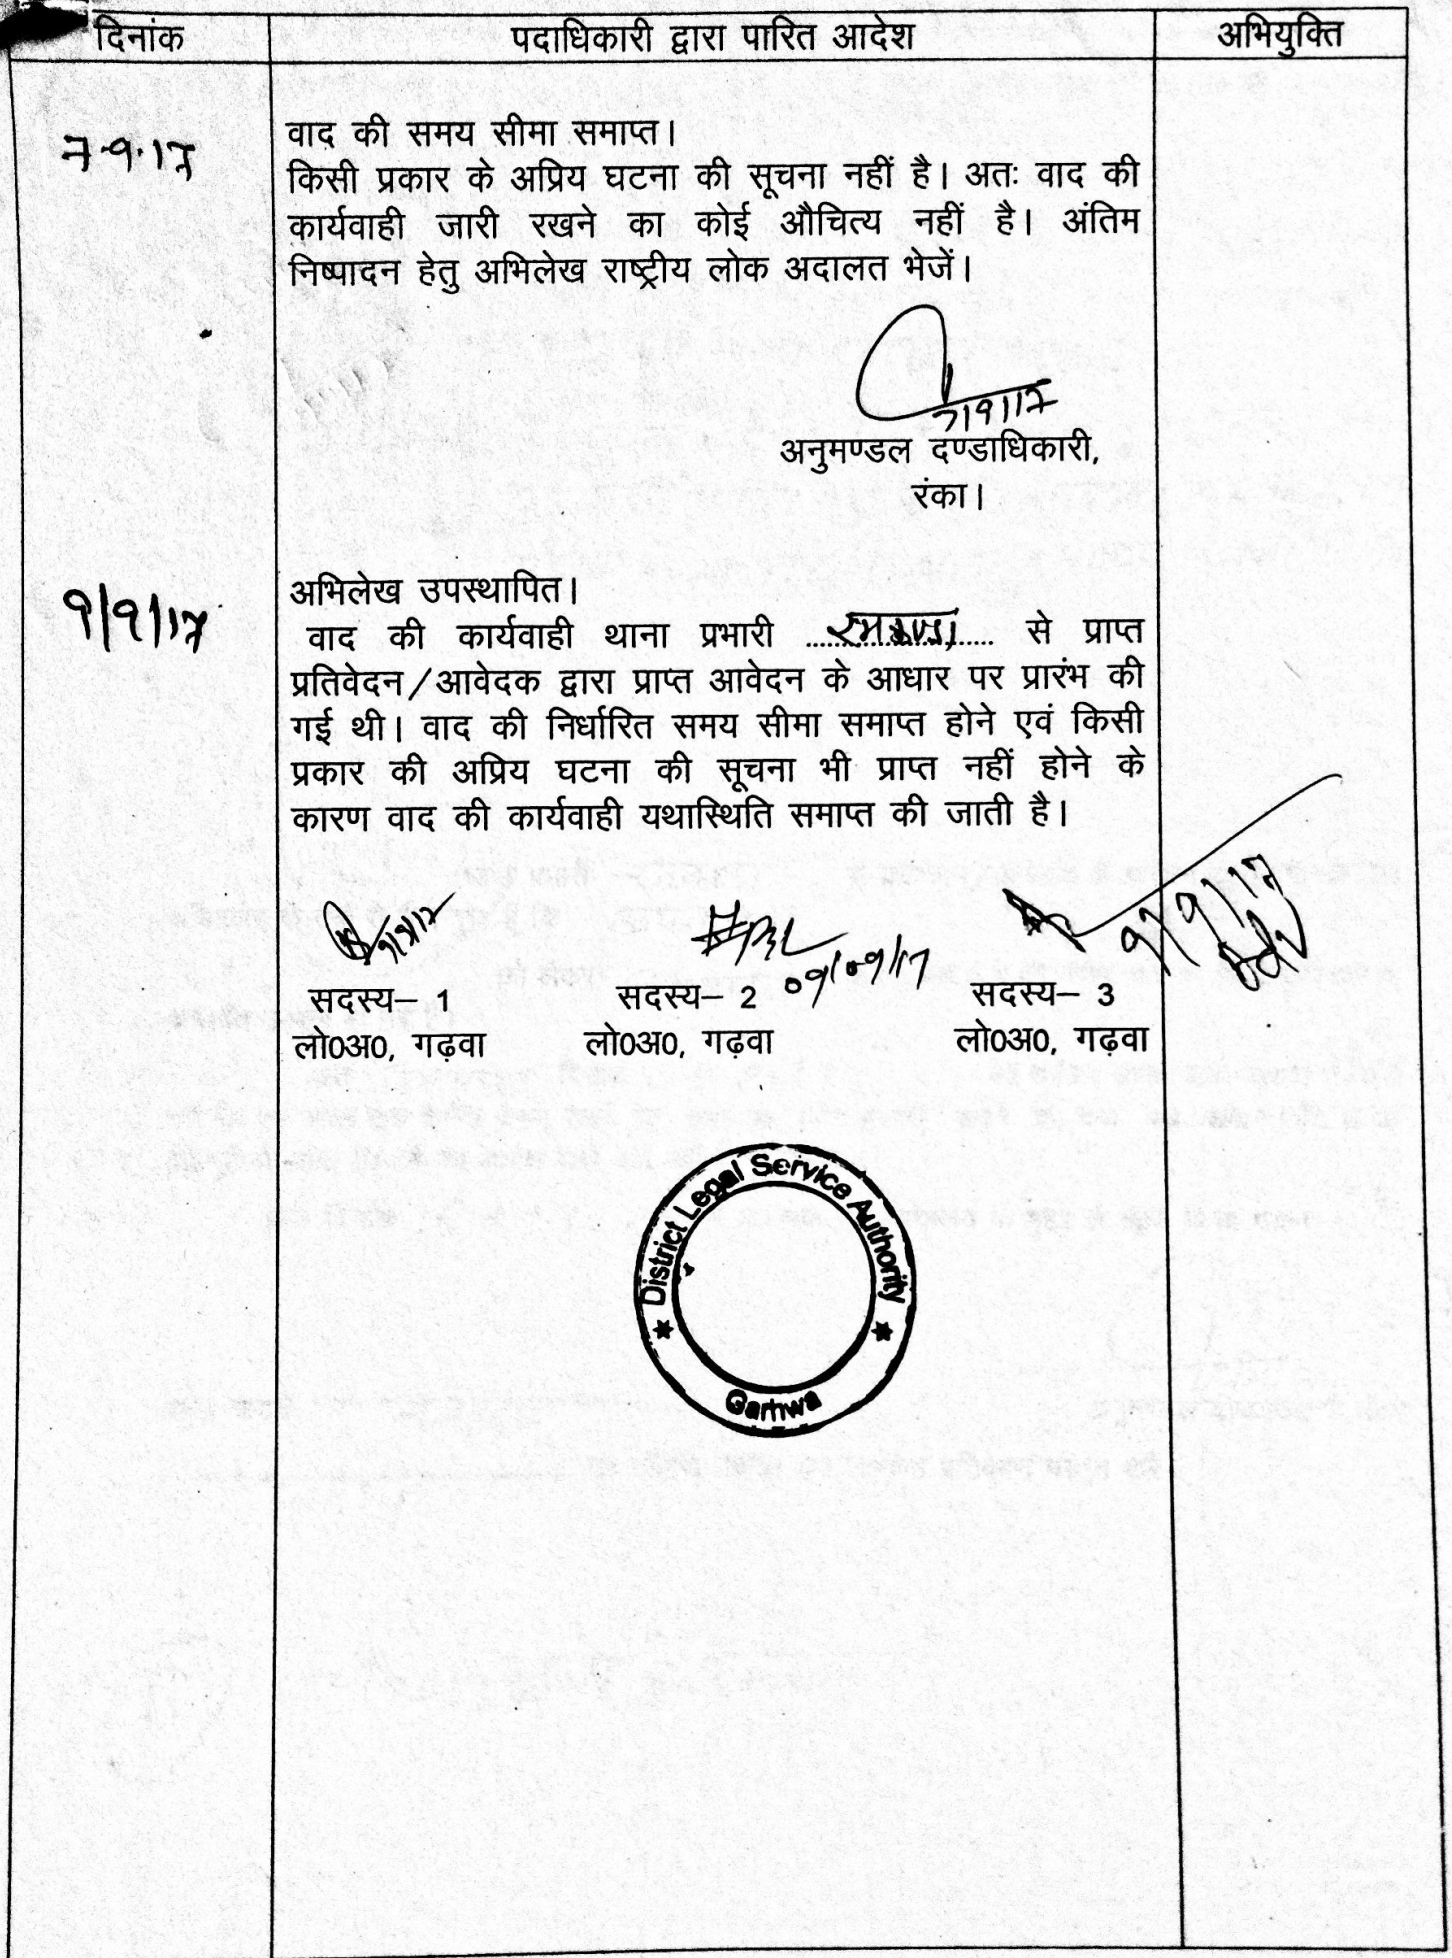 दिनांक पदाधिकारी द्वारा पारित आदेश अभियुक्ति
7-9-17 वाद की समय सीमा समाप्त।
किसी प्रकार के अप्रिय घटना की सूचना नहीं है। अतः वाद की
कार्यवाही जारी रखने का कोई औचित्य नहीं है। अंतिम
निष्पादन हेतु अभिलेख राष्ट्रीय लोक अदालत भेजें।
7/9/17
अनुमण्डल दण्डाधिकारी,
रंका।
9/9/17 अभिलेख उपस्थापित।
वाद की कार्यवाही थाना प्रभारी से प्राप्त
प्रतिवेदन/आवेदक द्वारा प्राप्त आवेदन के आधार पर प्रारंभ की
गई थी। वाद की निर्धारित समय सीमा समाप्त होने एवं किसी
प्रकार की अप्रिय घटना की सूचना भी प्राप्त नहीं होने के
कारण वाद की कार्यवाही यथास्थिति समाप्त की जाती है।
9/9/17 09/09/17 9/9/17
सदस्य– 1 सदस्य– 2 सदस्य– 3
लो0अ0, गढ़वा लो0अ0, गढ़वा लो0अ0, गढ़वा
District Legal Service Authority
Garhwa